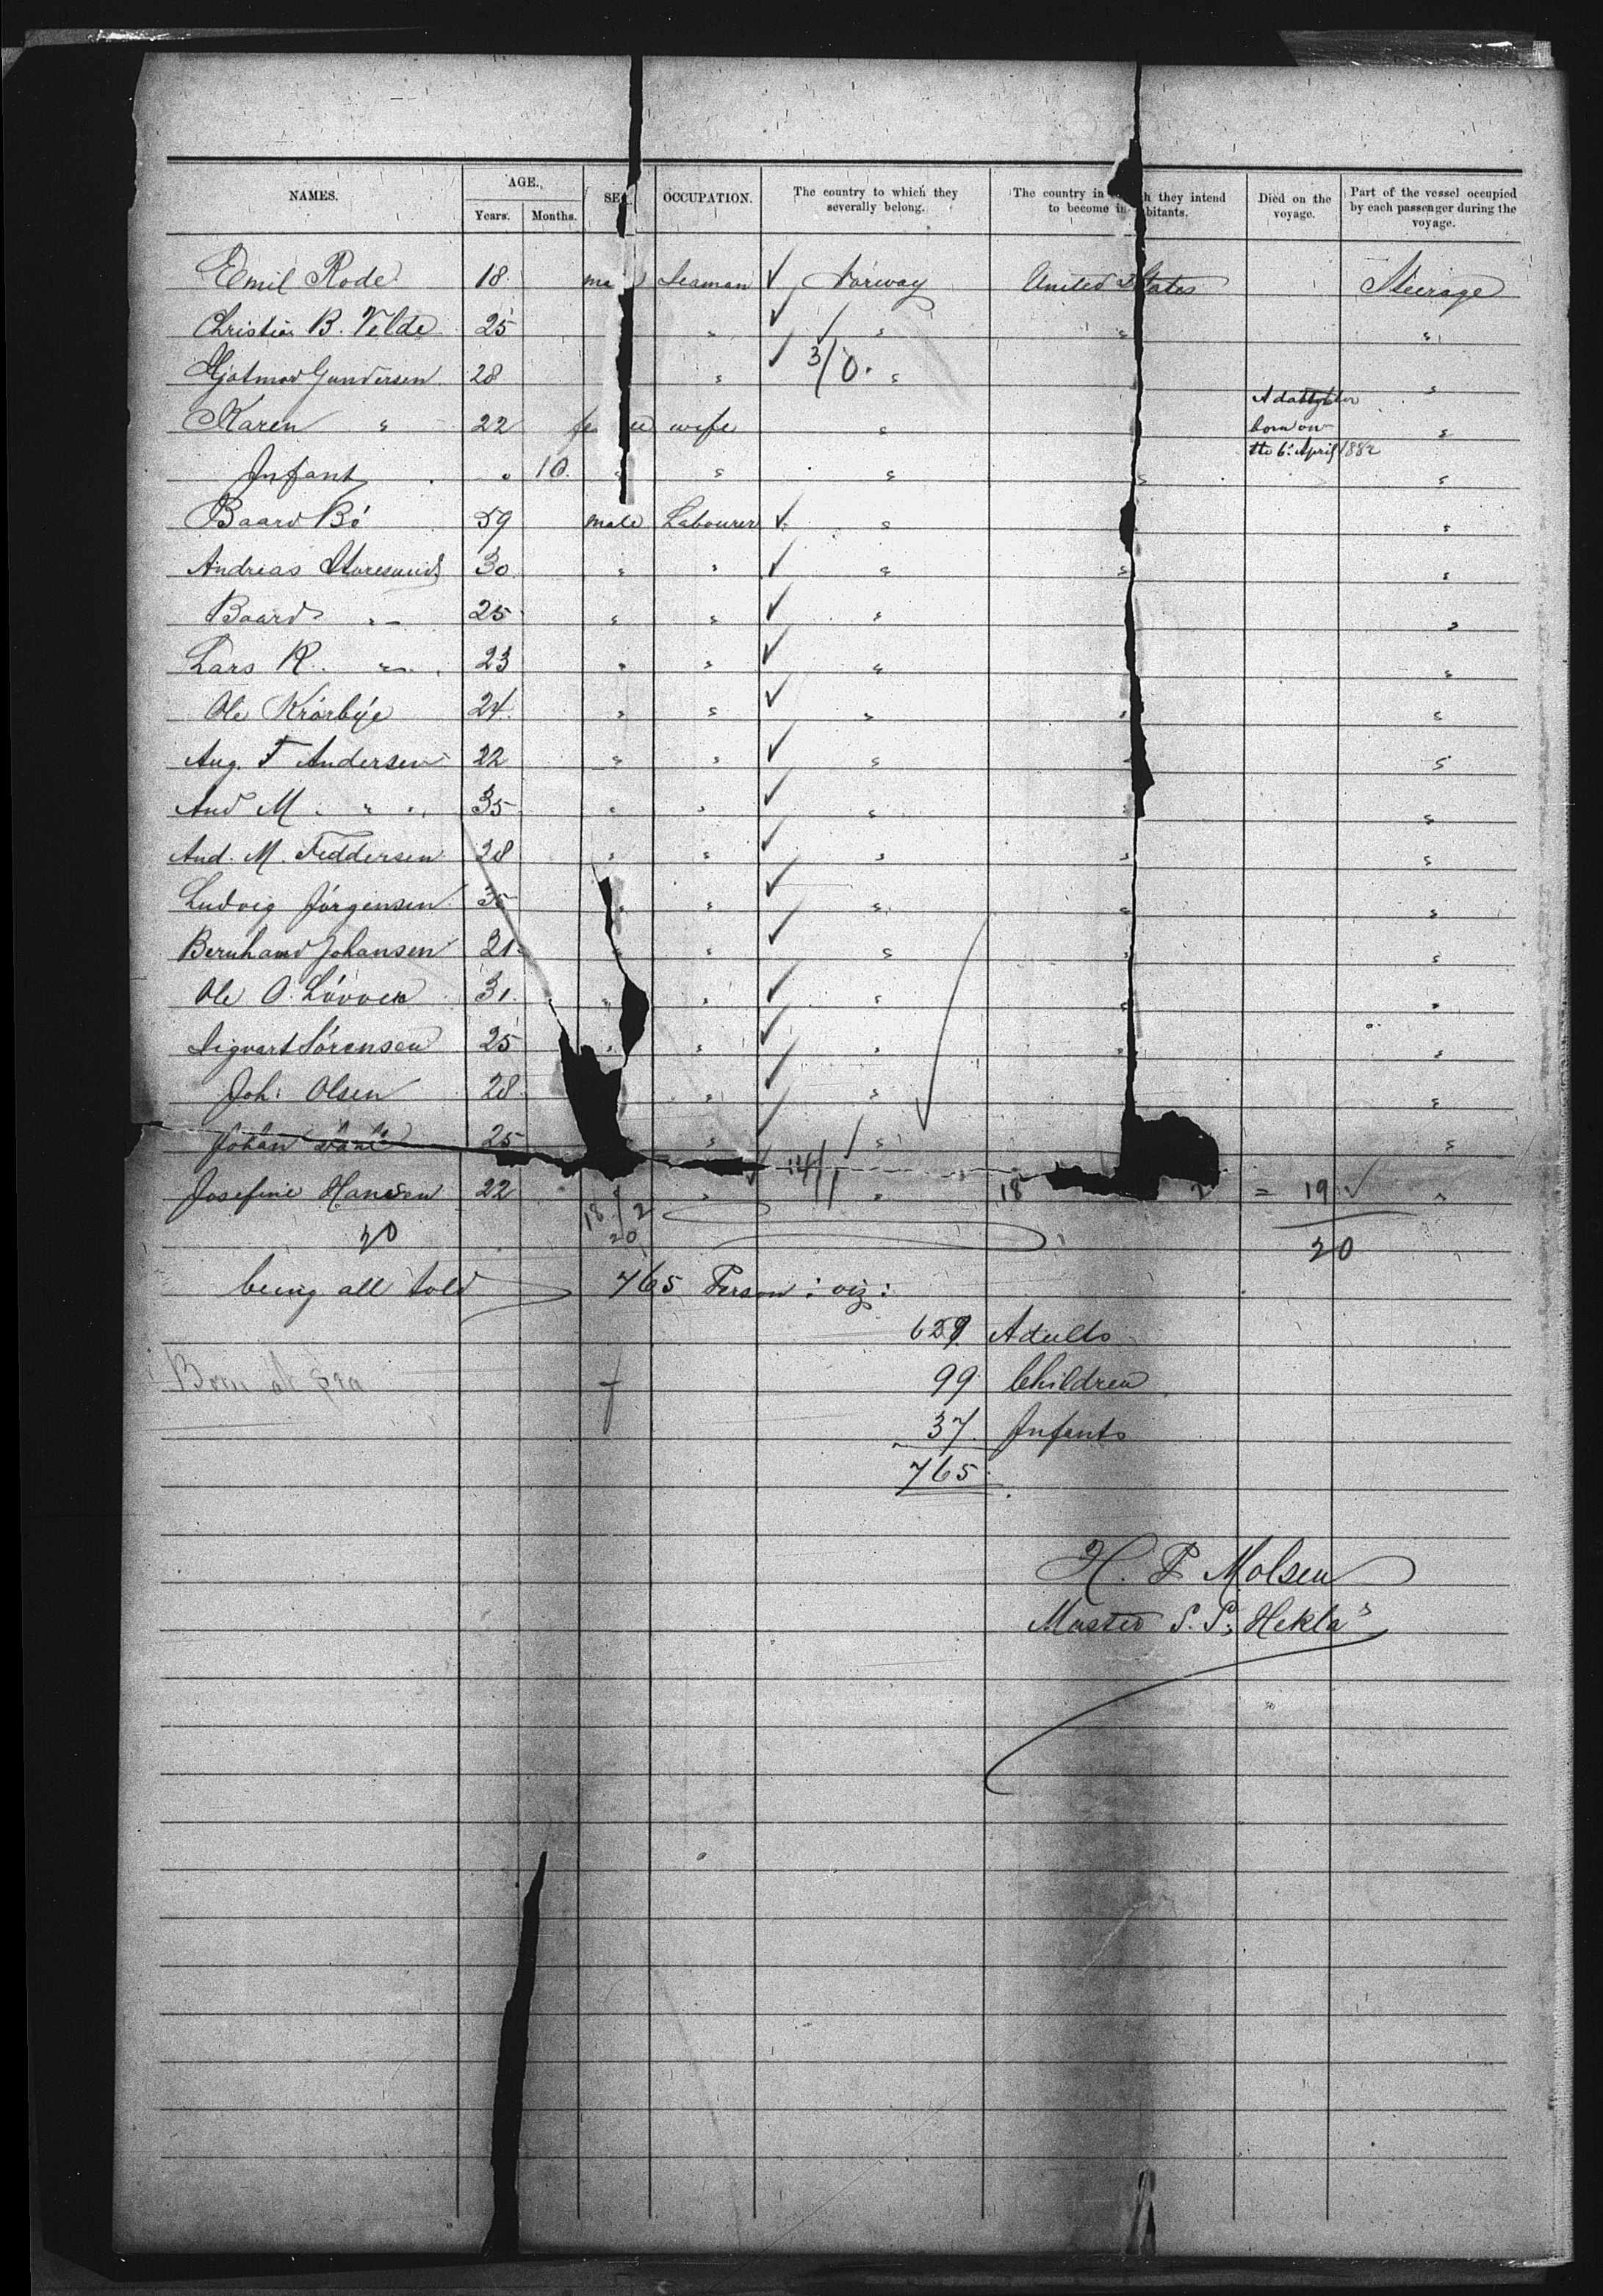 NAMES. AGE. SEX. OCCUPATION. The country to which they severally belong. The country in which they intend to become inhabitants. Died on the voyage. Part of the vessel occupied by each passenger during the voyage.
Years. Months.
Emil Rode 18 ma Seaman ✓ Norway United States Steerage
Christian B. Velde 25 " ✓ " " "
Hjalmar Gundersen 28 " ✓ 3/0. " "
Karen " 22 fe le wife " A daughter born on the 6: April 1882 "
Infant " 10 " " " " "
Baard Bö 59 male Labourer ✓ " "
Andreas Storesund 30 " " ✓ " " "
Baard " 25 " " ✓ " "
Lars R. " 23 " " ✓ " "
Ole Krörbye 24 " " ✓ " " "
Aug. F Andersen 22 " " ✓ " " "
And M. " 35 " " ✓ " " "
And. M. Feddersen 28 " " ✓ " " "
Ludvig Jörgensen 35 " " ✓ " " "
Bernhard Johansen 21 " " ✓ " " "
Ole O. 31 " " ✓ " " "
Sigvart Sörensen 25 " " ✓ " " "
Joh: Olsen 28 " ✓ " "
Johan 25 " ✓ " "
Josefine Hansen 22 " " ✓ 14/1 " 18 2 = 19 ✓ "
20 18/2 20 20
being all told 765 Person: viz:
659 Adults
Born at Sea 99 Children
37 Infants
765
H. P Molsen
Master S. S. "Hekla"